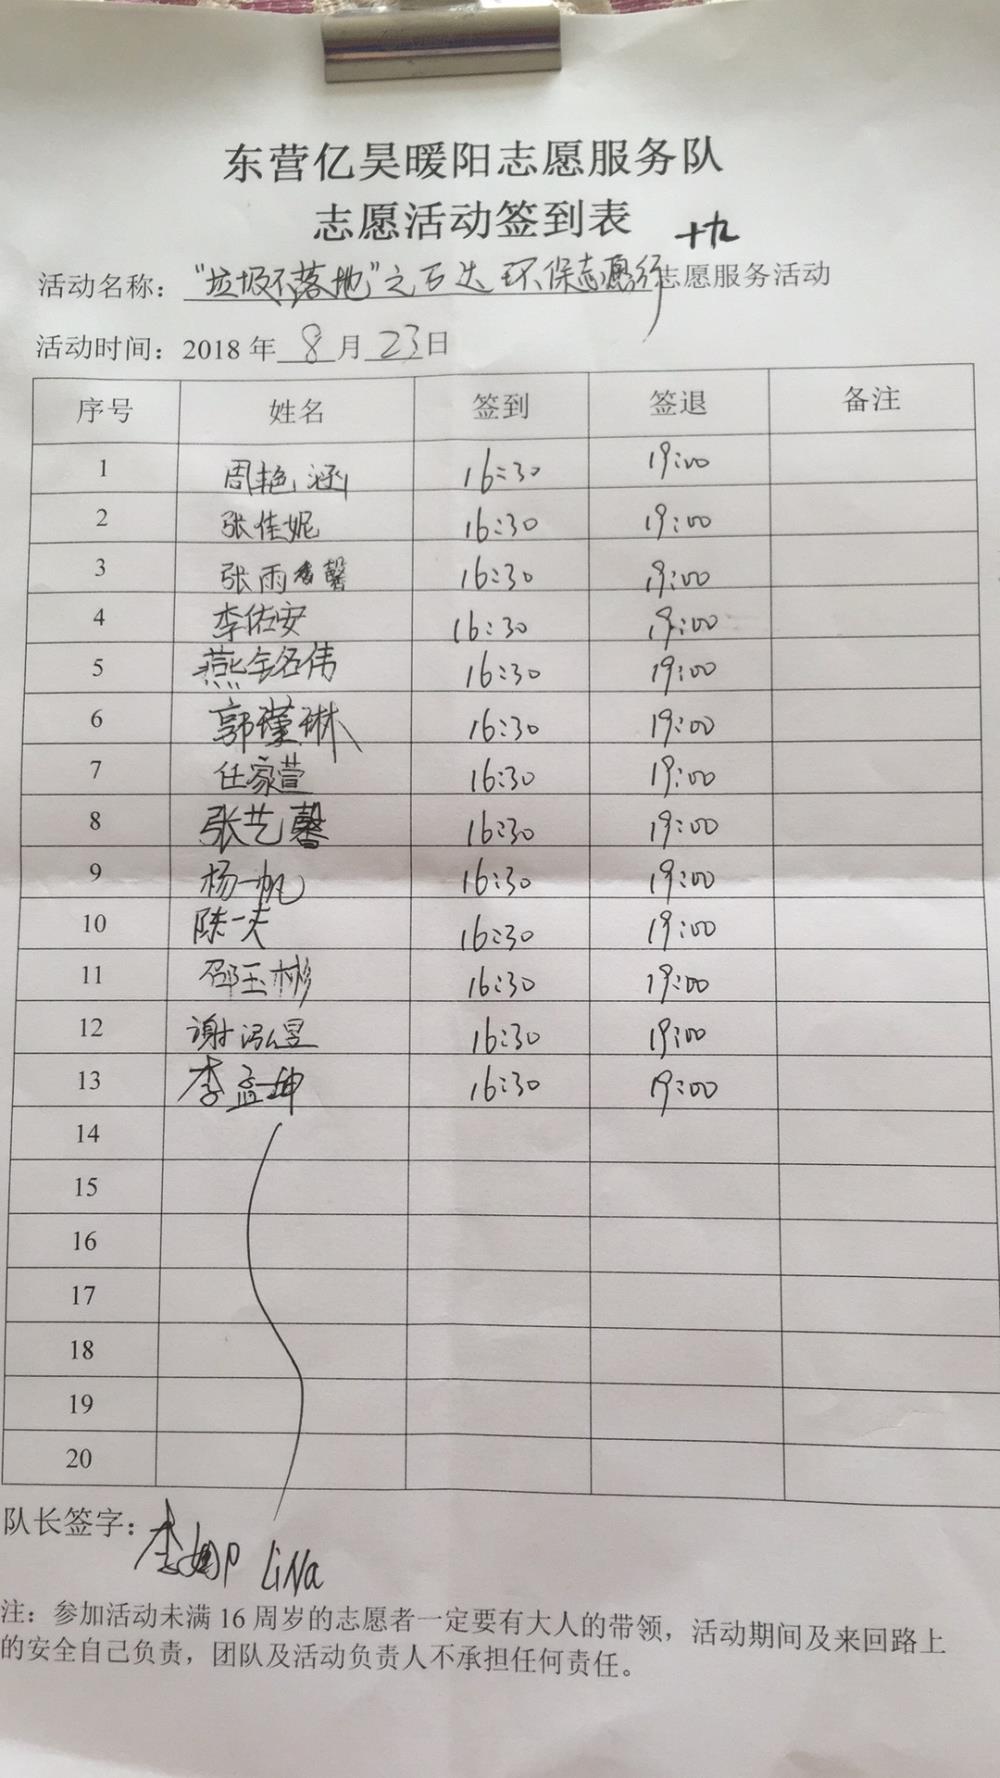 东营亿昊暖阳志愿服务队
志愿活动签到表
十九
活动名称："垃圾不落地"之万达环保志愿行志愿服务活动
活动时间：2018年8月23日
序号 姓名 签到 签退 备注
1 周艳涵 16:30 19:00
2 张佳妮 16:30 19:00
3 张雨馨 16:30 19:00
4 李佑安 16:30 19:00
5 燕名伟 16:30 19:00
6 郭瑾琳 16:30 19:00
7 任家萱 16:30 19:00
8 张艺馨 16:30 19:00
9 杨一帆 16:30 19:00
10 陈一夫 16:30 19:00
11 邵玉彬 16:30 19:00
12 谢泓昱 16:30 19:00
13 李孟坤 16:30 19:00
14
15
16
17
18
19
20
队长签字：李娜 LiNa
注：参加活动未满16周岁的志愿者一定要有大人的带领，活动期间及来回路上
的安全自己负责，团队及活动负责人不承担任何责任。